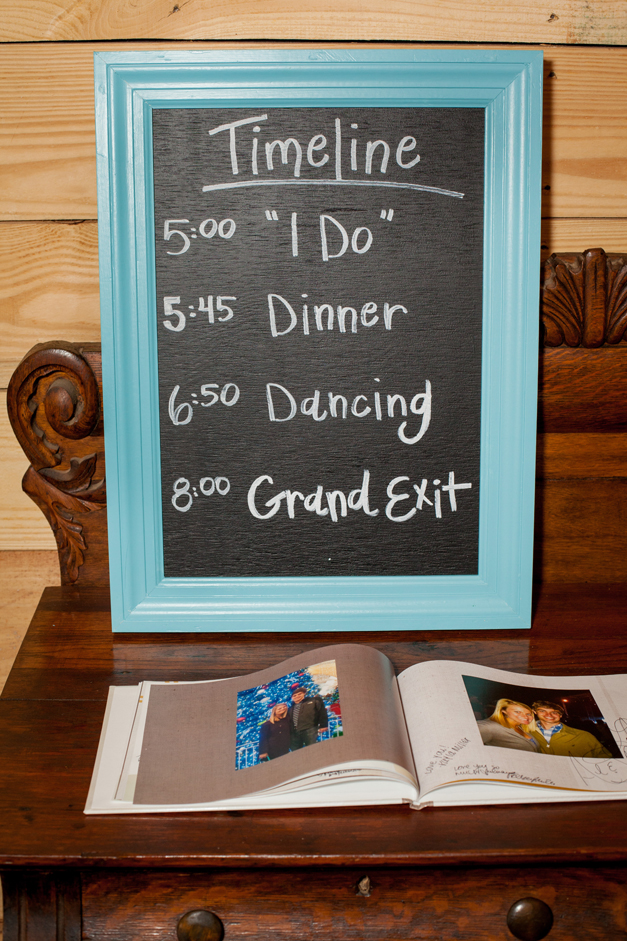 Timeline
5:00 "I Do"
5:45 Dinner
6:50 Dancing
8:00 Grand Exit
LOVE YOU SO